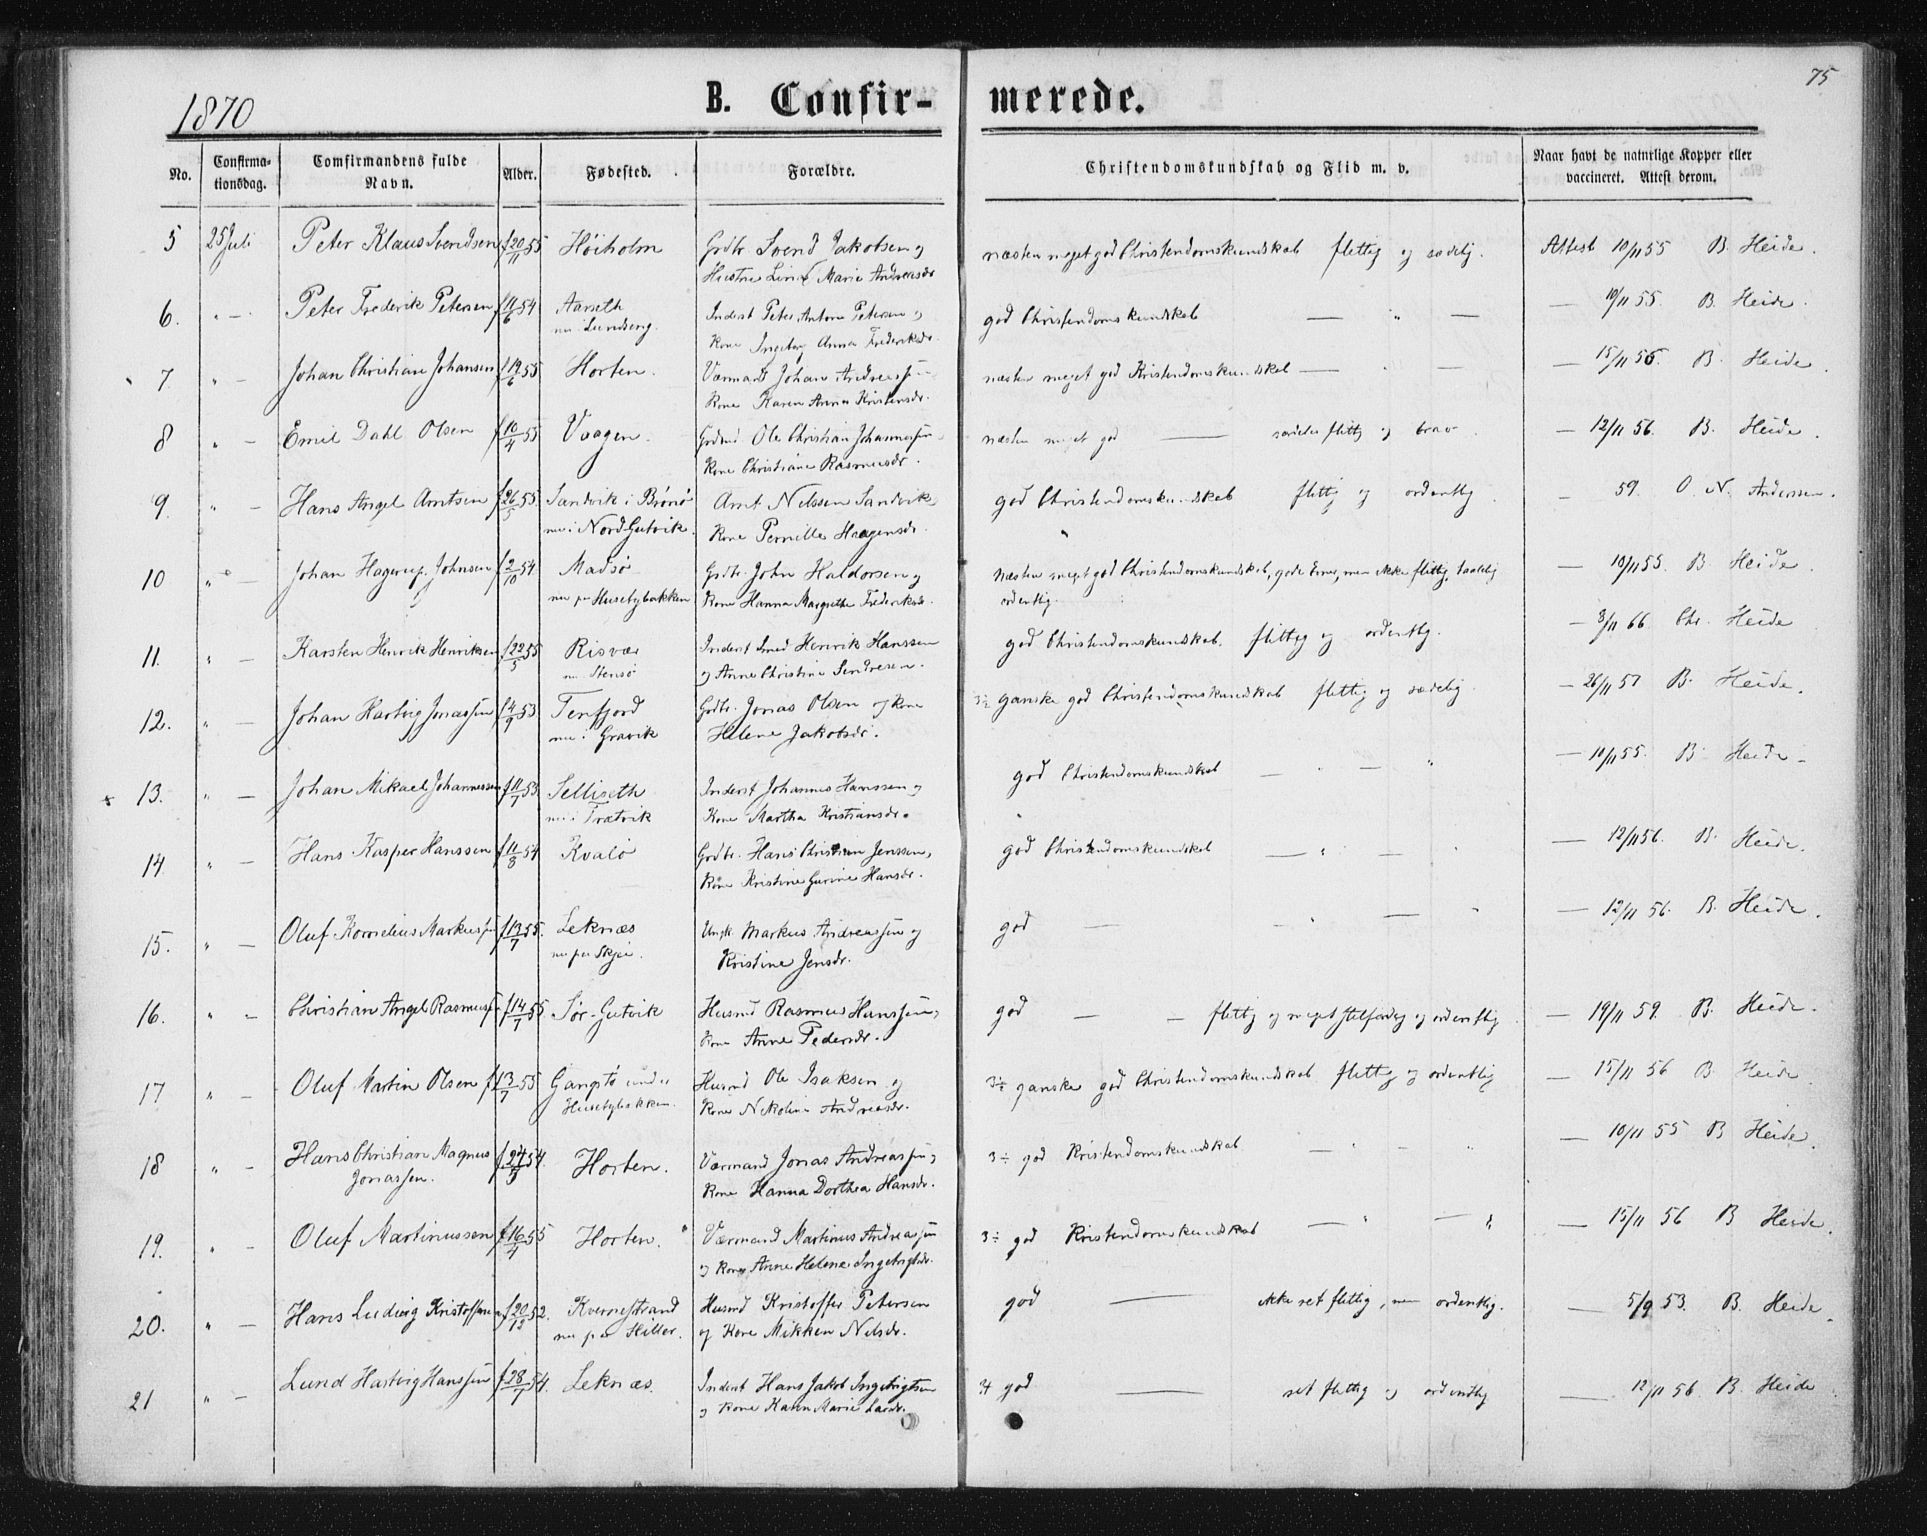 75
1870 B. Confir- merede.
No. Confirma-tionsdag. Comfirmandens fulde Navn. Alder. Fødested. Forældre. Christendomskundskab og Flid m. v. Naar havt de naturlige Kopper eller vaccineret. Attest derom.
5 25 Juli Peter Klaus Svendsen f 20/11 55 Høiholm Grdbr. Svend Jakobsen og næsten meget god Christendomskundskab flittig og sædelig. Attest 10/11 55 B. Heide.
Hustru Lina Marie Andreasdr
6. " — Peter Frederik Petersen f 11/6 54 Aarseth Inderst Peter Anton Petersen og god Christendomskundskab — " — — 10/11 55. B. Heide.
nu Lundseng. Kone Ingeborg Anna Frederiksdr.
7. " — Johan Christian Johansen f 19/6 55 Horten. Værmand Johan Andreassen næsten meget god Kristendomskundskab — " — — 15/11 56. B. Heide.
Kone Karen Anna Kristensdr.
8 " — Emil Dahl Olsen f 10/4 55 Vaagen. Grdmd Ole Christian Johannessen, næsten meget god — særdeles flittig og brav. — 12/11 56. B. Heide.
Kone Christiane Rasmusdr.
9. " — Hans Angel Arntsen f 26/5 55. Sandvik i Brønø Arnt Nilssen Sandvik, god Christendomskundskab flittig og ordentlig. — 59. O. N. Anderssen.
nu i Nord Gutvik. Kone Pernille Haagensdr.
10 " — Johan Hagerup Johnsen f 2/10 54 Madsø Grdbr. John Haldorsen og næsten meget god Christendomskundskab, gode Evner, men ikke flittig, taalelig — 10/11 55. B. Heide.
nu paa Husebybakken Kone Hanna Margrethe Frederiksdr. ordentlig.
11. " — Karsten Henrik Henriksen f 22/5 55 Risvær Inderst Smed Henrik Hanssen god Christendomskundskab. flittig og ordentlig. — 3/11 66. Chr. Heide
nu Stensø og Anne Christine
12. " — Johan Hartvig Jonassen f 4/9 53 Terfjord Grdbr. Jonas Olsen og Kone 3½ ganske god Christendomskundskab flittig og sædelig. — 26/11 57 B. Heide.
nu i Gravik Helene Jakobsdr.
13. " — Johan Mikael Johannessen f 11/7 53. Selliseth Inderst Johannes Hanssen og god Christendomskundskab — " — " — 10/11 55. B. Heide.
nu i Trætvik Kone Martha Kristiansdr.
14. " — Hans Kasper Hanssen f 11/8 54 Kvalø Grdbr. Hans Christian Jenssen, god Christendomskundskab — " — " — 12/11 56. B. Heide.
Kone Kristine Gurine Hansdr.
15. " — Oluf Kornelius Markussen f 13/7 55. Leknæs Ungk. Markus Andreassen og god — " — " — 12/11 56. B. Heide.
nu paa Skjei. Kristine Jensdr.
16. " — Christian Angel Rasmussen f 14/7 55 Sør-Gutvik Husmd Rasmus Hanssen, god — — flittig og meget stilfærdig og ordentlig. — 19/11 59. B. Heide.
Kone Anne Pedersdr.
17 " — Oluf Martin Olsen f 13/7 55 Gangstø under Husmd Ole Isaksen og 3½ ganske god Christendomskundskab flittig og ordentlig — 15/11 56 B. Heide
Husebybakken. Kone Nikoline Andreasdr.
18 " — Hans Christian Magnus f 27/8 54. Horten. Værmand Jonas Andreassen, 3÷ god Kristendomskundskab — " — " — 10/11 55 B Heide.
Jonassen. Kone Hanna Dorthea Hansdr.
19. " — Oluf Martinussen f 16/4 55 Horten. Værmand Martinus Andreassen 3÷ god Kristendomskundskab — " — " — 15/11 56 B Heide.
og Kone Anne Helene Ingebrigtsdr.
20. " — Hans Ludvig Kristoffersen f 20/12 52. Kvernestrand Husmd Kristoffer Petersen god — ikke ret flittig, men ordentlig. — 5/9 53. B. Heide.
nu paa Hiller. og Kone Mikken Nilsdr.
21 " — Lund Hartvig Hanssen f 28/7 54. Leknæs. Inderst Hans Jakob Ingebrigtsen god — ret flittig og ordentlig — 12/11 56. B. Heide
og Kone Karen Marie Larsdr.